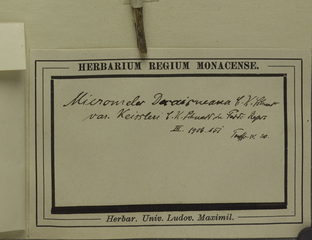 HERBARIUM REGIUM MONACENSE.
Micromeles Decaisneana C. K. Schneid
var. Keissleri C. K. Schneid in Fedde Repert
III. 1906. 151
Herbar. Univ. Ludov. Maximil.